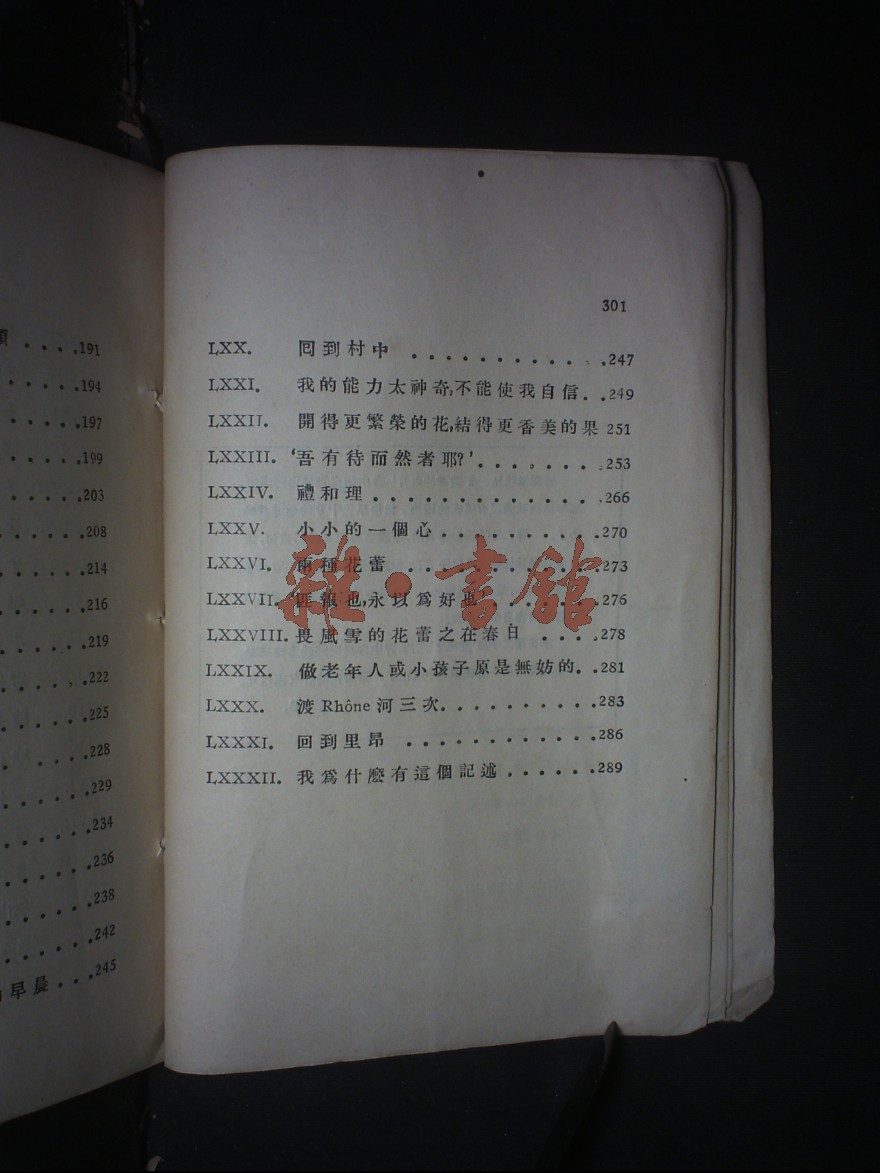 .191
.194
.197
.199
.203
.208
.214
.216
.219
.222
.225
.228
.229
.234
.236
.238
.242
早晨...245
301
LXX. 囘到村中 ............247
LXXI. 我的能力太神奇,不能使我自信..249
LXXII. 開得更繁榮的花,結得更香美的果 251
LXXIII. '吾有待而然者耶?'........253
LXXIV. 禮和理..............266
LXXV. 小小的一個心..........270
LXXVI. 兩種花蕾 ...........273
LXXVII. '匪報也,永以爲好也........276
LXXVIII. 畏風雪的花蕾之在春日 ....278
LXXIX. 做老年人或小孩子原是無妨的..281
LXXX. 渡Rhône河三次..........283
LXXXI. 回到里昂 ............286
LXXXII. 我爲什麽有這個記述......289
雜·書館